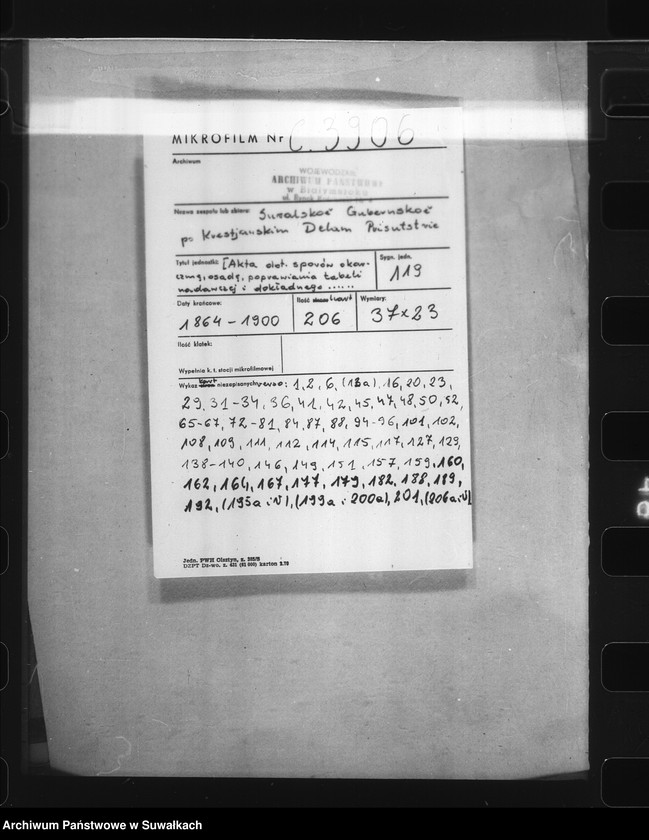 MIKROFILM Nr C.3906
Archiwum
WOJEWÓDZKIE
ARCHIWUM PAŃSTWOWE
w Białymstoku
ul. Rynek
Nazwa zespołu lub zbioru: Suvalskoè Gubernskoè
po Krestjanskim Delam Prisutstvie
Tytuł jednostki: [Akta dot. sporów o kar-
czmę, osadę, poprawiania tabeli
nadawczej i dokładnego ......
Sygn. jedn.
119
Daty krańcowe:
1864-1900
Ilość kart
206
Wymiary:
37x23
Ilość klatek:
Wypełnia k. t. stacji mikrofilmowej
Wykaz kart niezapisanych verso: 1, 2, 6, (13a), 16, 20, 23,
29, 31-34, 36, 41, 42, 45, 47, 48, 50, 52,
65-67, 72-81, 84, 87, 88, 94-96, 101, 102,
108, 109, 111, 112, 114, 115, 117, 127, 129,
138-140, 146, 149, 151, 157, 159, 160,
162, 164, 167, 177, 179, 182, 188, 189,
192, (195a i V), (199a i 200a), 201, (206a i V)
Jedn. PWH Olsztyn, z. 585/B
DZPT Dz-wo. z. 431 (61 000) karton 3.79
Archiwum Państwowe w Suwałkach